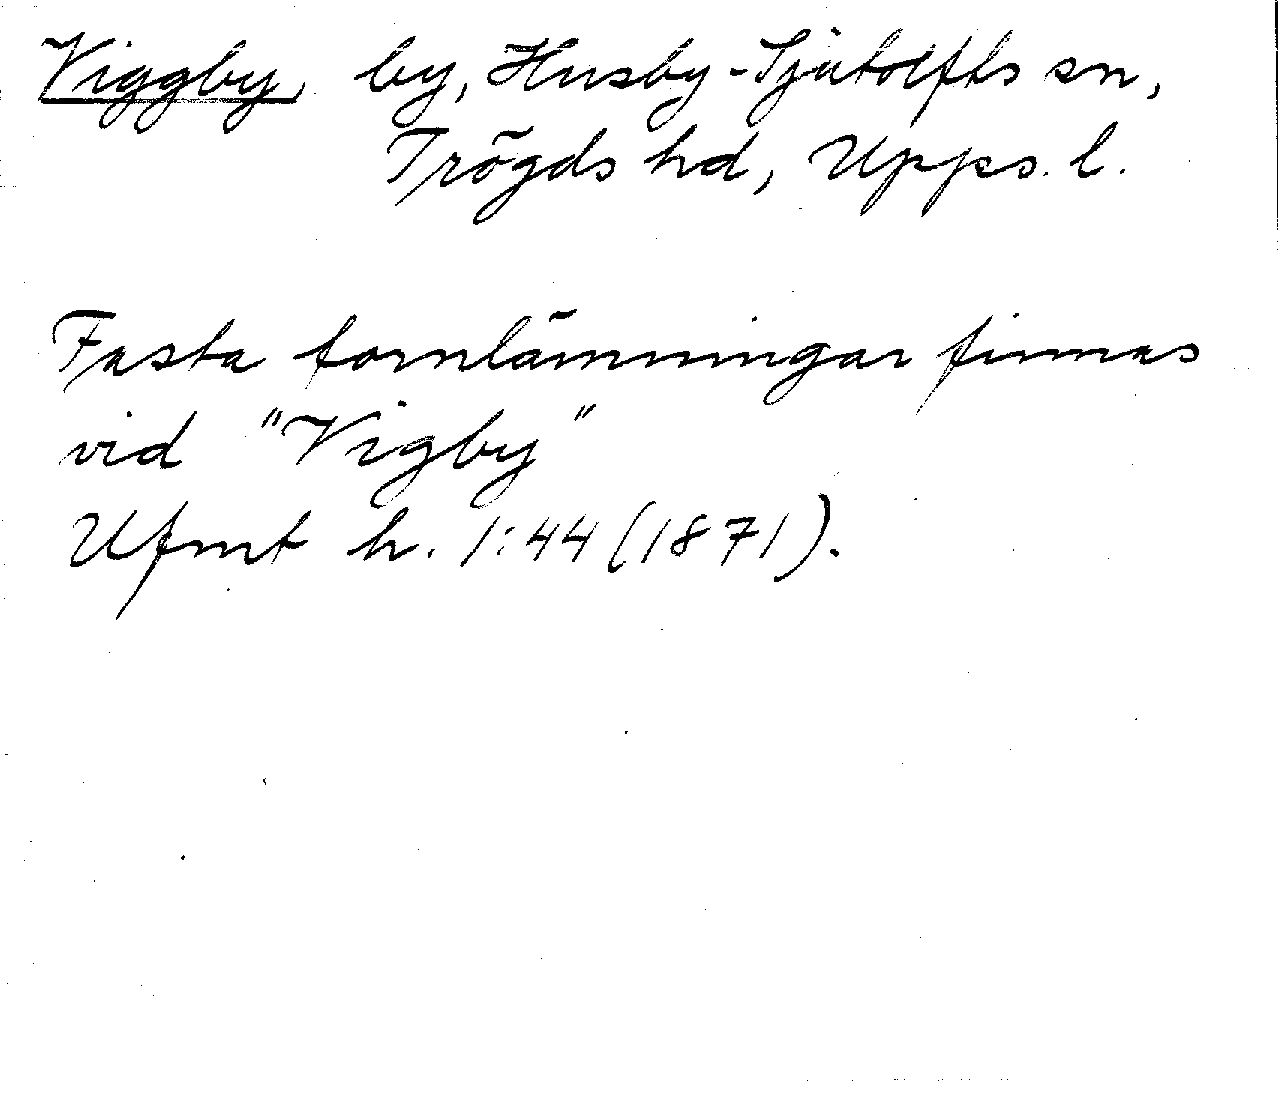 Viggby, by, Husby-Sjutolfts sn,
Trögds hd, Upps. l.
Fasta fornlämningar finnas
vid "Vigby"
Ufmt h. 1:44 (1871).